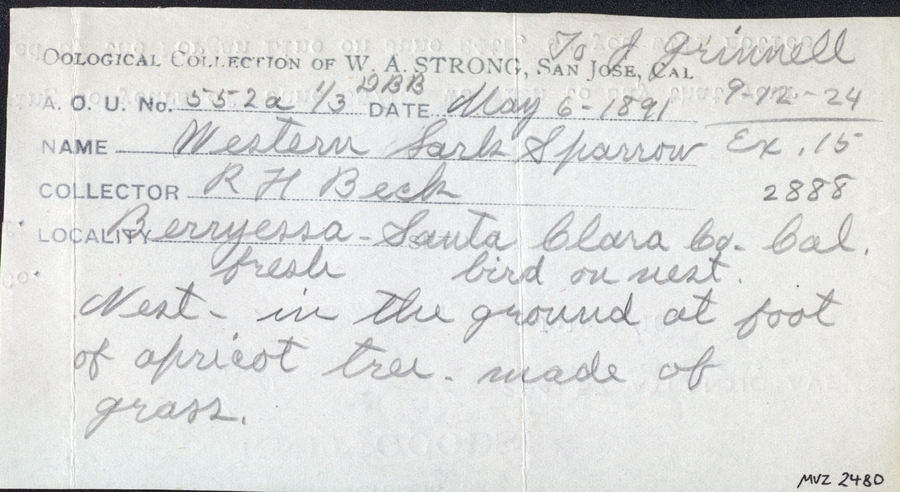 To J Grinnell
OOLOGICAL COLLECTION OF W. A. STRONG, SAN JOSE, CAL
A. O. U. No. 552a 1/3 DBB DATE May 6-1891 9-92-24
NAME Western Lark Sparrow Ex. 15
COLLECTOR R H Beck 2888
LOCALITY Berryessa - Santa Clara Co. Cal.
fresh bird on nest.
Nest - in the ground at foot
of apricot tree. made of
grass.
MVZ 2480